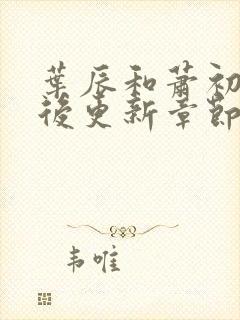 葉辰和蕭初
後更新章節
韦唯